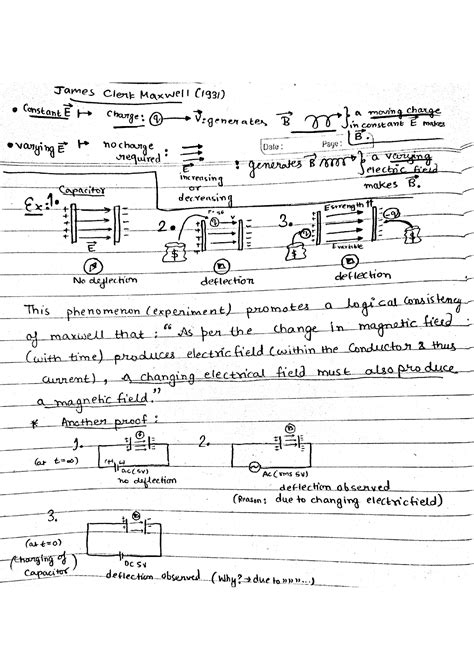 James Clerk Maxwell (1931)
• Constant E ↦ charge: q → V: generates B } a moving charge
in constant E makes
B.
• varying E ↦ no charge required : E increasing or decreasing : generates B } a varying
electric field
makes B.
Date : Page :
Ex: 1. Capacitor 2. V 3. E strength ↑↑ -q
+ - + - q + -
E
$ $ $
No deflection deflection deflection
This phenomenon (experiment) promotes a logical consistency
of maxwell that : "As per the change in magnetic field
(with time) produces electric field (within the conductor & thus
current), a changing electrical field must also produce
a magnetic field."
* Another proof :
1. 2.
(at t=∞) AC (5V) AC (rms 5V)
no deflection deflection observed
(Reason: due to changing electric field)
3.
(at t=0)
(charging of
capacitor) DC 5V
deflection observed (Why? → due to """...)